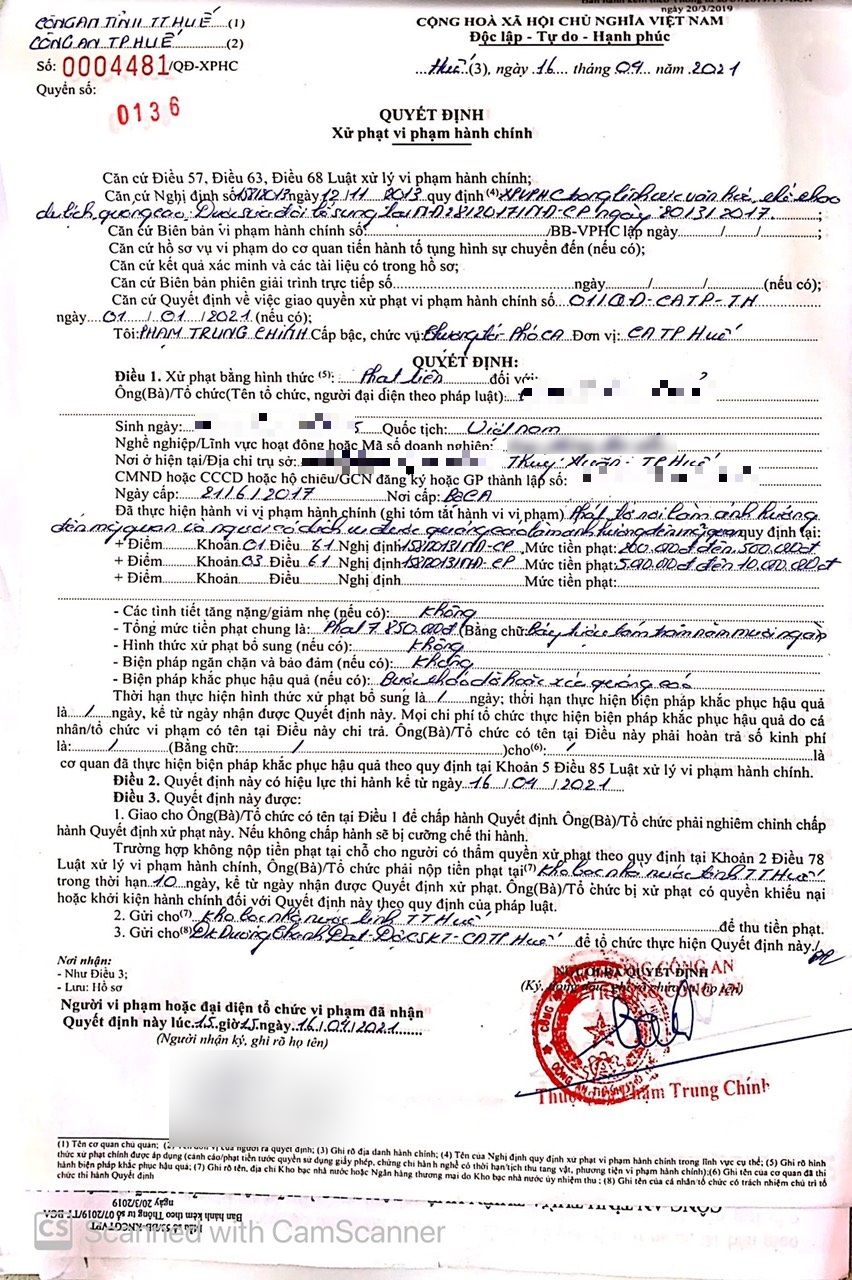 Ban hành kèm theo Thông tư số
ngày 20/3/2019
CÔNG AN TỈNH TT HUẾ (1)
CÔNG AN TP HUẾ (2)
Số: 0004481/QĐ-XPHC
Quyển số:
0136
CỘNG HOÀ XÃ HỘI CHỦ NGHĨA VIỆT NAM
Độc lập - Tự do - Hạnh phúc
Huế (3), ngày 16 tháng 04 năm 2021
QUYẾT ĐỊNH
Xử phạt vi phạm hành chính
Căn cứ Điều 57, Điều 63, Điều 68 Luật xử lý vi phạm hành chính;
Căn cứ Nghị định số 158/2013 ngày 12/11/2013 quy định (4) XPVPHC trong lĩnh vực văn hoá, thể thao
du lịch, quảng cáo; Được sửa đổi bổ sung tại NĐ 28/2017/NĐ-CP ngày 20/3/2017.;
Căn cứ Biên bản vi phạm hành chính số: /BB-VPHC lập ngày / / ;
Căn cứ hồ sơ vụ vi phạm do cơ quan tiến hành tố tụng hình sự chuyển đến (nếu có);
Căn cứ kết quả xác minh và các tài liệu có trong hồ sơ;
Căn cứ Biên bản phiên giải trình trực tiếp số ngày / / (nếu có);
Căn cứ Quyết định về việc giao quyền xử phạt vi phạm hành chính số 01/QĐ-CATP-TH
ngày 01 / 01 / 2021 (nếu có);
Tôi: PHẠM TRUNG CHÍNH Cấp bậc, chức vụ: Thượng tá - Phó CA Đơn vị: CA TP Huế
QUYẾT ĐỊNH:
Điều 1. Xử phạt bằng hình thức (5): Phạt tiền đối với:
Ông(Bà)/Tổ chức(Tên tổ chức, người đại diện theo pháp luật):
Sinh ngày: 5 Quốc tịch: Việt nam
Nghề nghiệp/Lĩnh vực hoạt động hoặc Mã số doanh nghiệp:
Nơi ở hiện tại/Địa chỉ trụ sở: Thuỷ Xuân - TP Huế
CMND hoặc CCCD hoặc hộ chiếu/GCN đăng ký hoặc GP thành lập số:
Ngày cấp: 21/6/2017 Nơi cấp: BCA
Đã thực hiện hành vi vi phạm hành chính (ghi tóm tắt hành vi vi phạm) Phát tờ rơi làm ảnh hưởng
đến mỹ quan và người có dịch vụ được quảng cáo làm ảnh hưởng đến mỹ quan quy định tại:
+ Điểm Khoản 01 Điều 61 Nghị định 158/2013/NĐ-CP Mức tiền phạt: 200.000đ đến 500.000đ
+ Điểm Khoản 03 Điều 61 Nghị định 158/2013/NĐ-CP Mức tiền phạt: 5.000.000đ đến 10.000.000đ
+ Điểm Khoản Điều Nghị định Mức tiền phạt:
- Các tình tiết tăng nặng/giảm nhẹ (nếu có): Không
- Tổng mức tiền phạt chung là: Phạt 7.850.000đ (Bằng chữ: Bảy triệu tám trăm năm mươi ngàn
- Hình thức xử phạt bổ sung (nếu có): Không
- Biện pháp ngăn chặn và bảo đảm (nếu có): Không
- Biện pháp khắc phục hậu quả (nếu có): Buộc tháo dỡ hoặc xóa quảng cáo
Thời hạn thực hiện hình thức xử phạt bổ sung là / ngày; thời hạn thực hiện biện pháp khắc phục hậu quả
là / ngày, kể từ ngày nhận được Quyết định này. Mọi chi phí tổ chức thực hiện biện pháp khắc phục hậu quả do cá
nhân/tổ chức vi phạm có tên tại Điều này chi trả. Ông(Bà)/Tổ chức có tên tại Điều này phải hoàn trả số kinh phí
là: / (Bằng chữ: / )cho(6): / là
cơ quan đã thực hiện biện pháp khắc phục hậu quả theo quy định tại Khoản 5 Điều 85 Luật xử lý vi phạm hành chính.
Điều 2. Quyết định này có hiệu lực thi hành kể từ ngày 16 / 04 / 2021
Điều 3. Quyết định này được:
1. Giao cho Ông(Bà)/Tổ chức có tên tại Điều 1 để chấp hành Quyết định Ông(Bà)/Tổ chức phải nghiêm chỉnh chấp
hành Quyết định xử phạt này. Nếu không chấp hành sẽ bị cưỡng chế thi hành.
Trường hợp không nộp tiền phạt tại chỗ cho người có thẩm quyền xử phạt theo quy định tại Khoản 2 Điều 78
Luật xử lý vi phạm hành chính, Ông(Bà)/Tổ chức phải nộp tiền phạt tại(7) Kho bạc nhà nước tỉnh TT Huế
trong thời hạn 10 ngày, kể từ ngày nhận được Quyết định xử phạt. Ông(Bà)/Tổ chức bị xử phạt có quyền khiếu nại
hoặc khởi kiện hành chính đối với Quyết định này theo quy định của pháp luật.
2. Gửi cho(7) Kho bạc nhà nước tỉnh TT Huế để thu tiền phạt.
3. Gửi cho(8) Đ/c Dương Thành Đạt - Đội CSKT - CATP Huế để tổ chức thực hiện Quyết định này./
Nơi nhận:
- Như Điều 3;
- Lưu: Hồ sơ
NGƯỜI RA QUYẾT ĐỊNH
(Ký, đóng dấu, ghi rõ chức vụ, họ tên)
Người vi phạm hoặc đại diện tổ chức vi phạm đã nhận
Quyết định này lúc 15 giờ 15 ngày 16/04/2021
(Người nhận ký, ghi rõ họ tên)
Phạm Trung Chính
(1) Tên cơ quan chủ quan; (2) Tên đơn vị của người ra quyết định; (3) Ghi rõ địa danh hành chính; (4) Tên của Nghị định quy định xử phạt vi phạm hành chính trong lĩnh vực cụ thể; (5) Ghi rõ hình
thức xử phạt chính được áp dụng (cảnh cáo/phạt tiền tước quyền sử dụng giấy phép, chứng chỉ hành nghề có thời hạn/tịch thu tang vật, phương tiện vi phạm hành chính);(6) Ghi tên của cơ quan đã thi
hành biện pháp khắc phục hậu quả; (7) Ghi rõ tên, địa chỉ Kho bạc nhà nước hoặc Ngân hàng thương mại do Kho bạc nhà nước ủy nhiệm thu; (8) Ghi tên của cá nhân tổ chức có trách nhiệm chủ trì tổ
chức thi hành Quyết định
Ban hành kèm theo Thông tư số 07/2019/TT-BCA
ngày 20/3/2019
CS Scanned with CamScanner